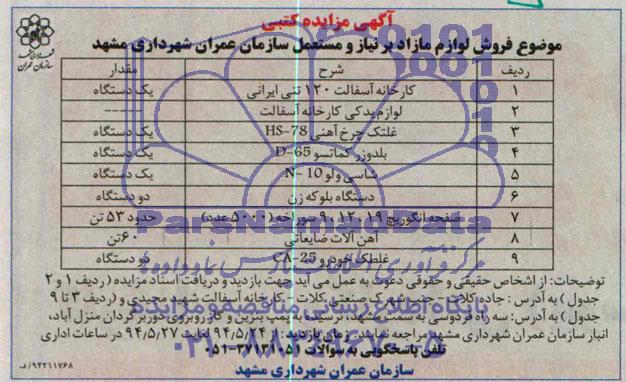 آگهی مزایده کتبی
موضوع فروش لوازم مازاد بر نیاز و مستعمل سازمان عمران شهرداری مشهد
شهرداری مشهد
سازمان عمران
ردیف شرح مقدار
۱ کارخانه آسفالت ۱۲۰ تنی ایرانی یک دستگاه
۲ لوازم یدکی کارخانه آسفالت -----
۳ غلتک چرخ آهنی HS-78 یک دستگاه
۴ بلدوزر کماتسو D-65 یک دستگاه
۵ شاسی ولو N-10 یک دستگاه
۶ دستگاه بلوکه زن دو دستگاه
۷ صفحه انگوریج ۱۹، ۱۲، ۹ سوراخه (۵۰۰۰ عدد) حدود ۵۳ تن
۸ آهن آلات ضایعاتی ۶۰ تن
۹ غلطک خودرو CA-25 دو دستگاه
توضیحات: از اشخاص حقیقی و حقوقی دعوت به عمل می آید جهت بازدید و دریافت اسناد مزایده (ردیف ۱ و ۲
جدول) به آدرس: جاده کلات - جنب شهرک صنعتی کلات - کارخانه آسفالت شهید مجیدی و (ردیف ۳ تا ۹
جدول) به آدرس: سه راه فردوسی به سمت مشهد، نرسیده به پمپ بنزین و گاز روبروی دوربرگردان منزل آباد،
انبار سازمان عمران شهرداری مشهد مراجعه نمایند. زمان بازدید: از ۹۴/۵/۲۴ لغایت ۹۴/۵/۲۷ در ساعات اداری
تلفن پاسخگویی به سوالات ۰۵۱-۳۷۱۳۱۰۵۱
سازمان عمران شهرداری مشهد
۹۴۲۱۱۷۶۸/ف
ParsNamadData